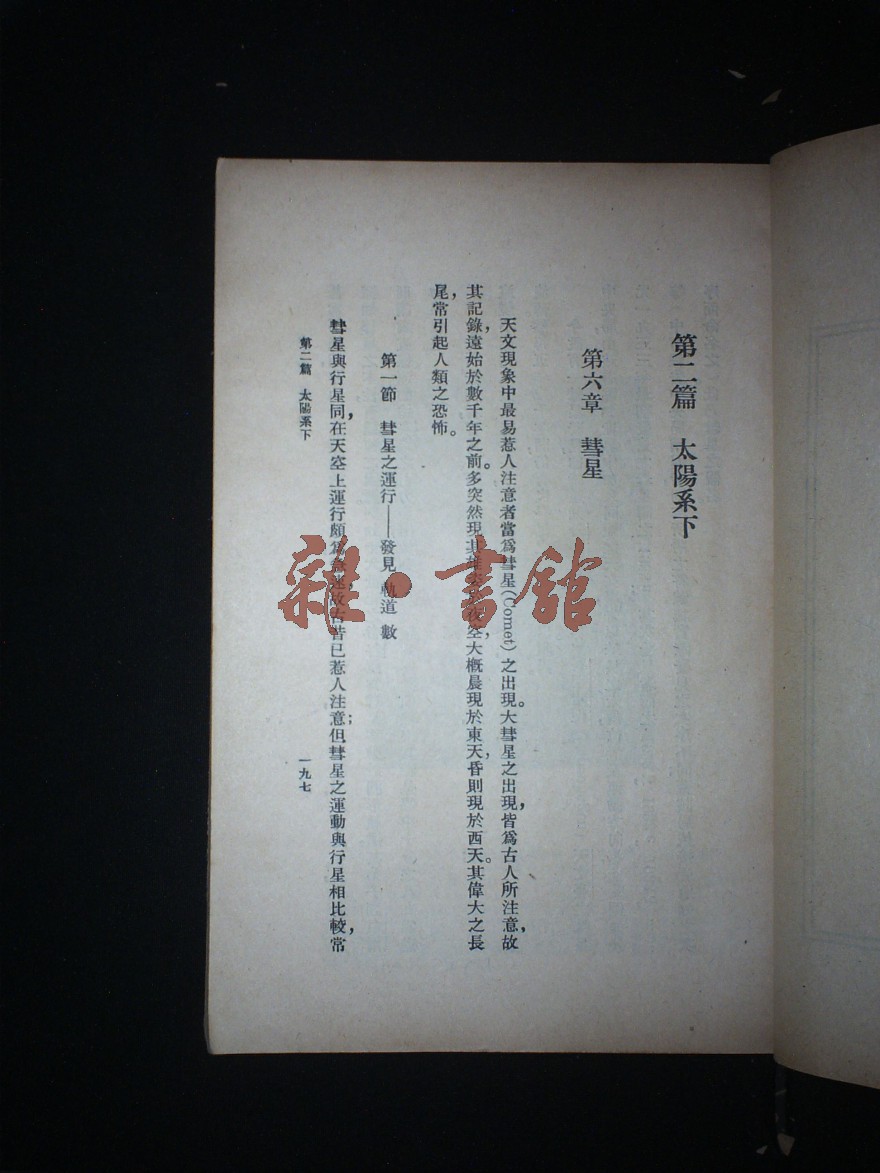 第二篇 太陽系下
第六章 彗星
天文現象中最易惹人注意者當爲彗星(Comet)之出現。大彗星之出現，皆爲古人所注意，故
其記錄，遠始於數千年之前。多突然現其 空，大概晨現於東天，昏則現於西天。其偉大之長
尾，常引起人類之恐怖。
第一節 彗星之運行——發見 軌道 數
彗星與行星同，在天空上運行頗爲 故古昔已惹人注意；但彗星之運動與行星相比較，常
第二篇 太陽系下
一九七
雜·書館